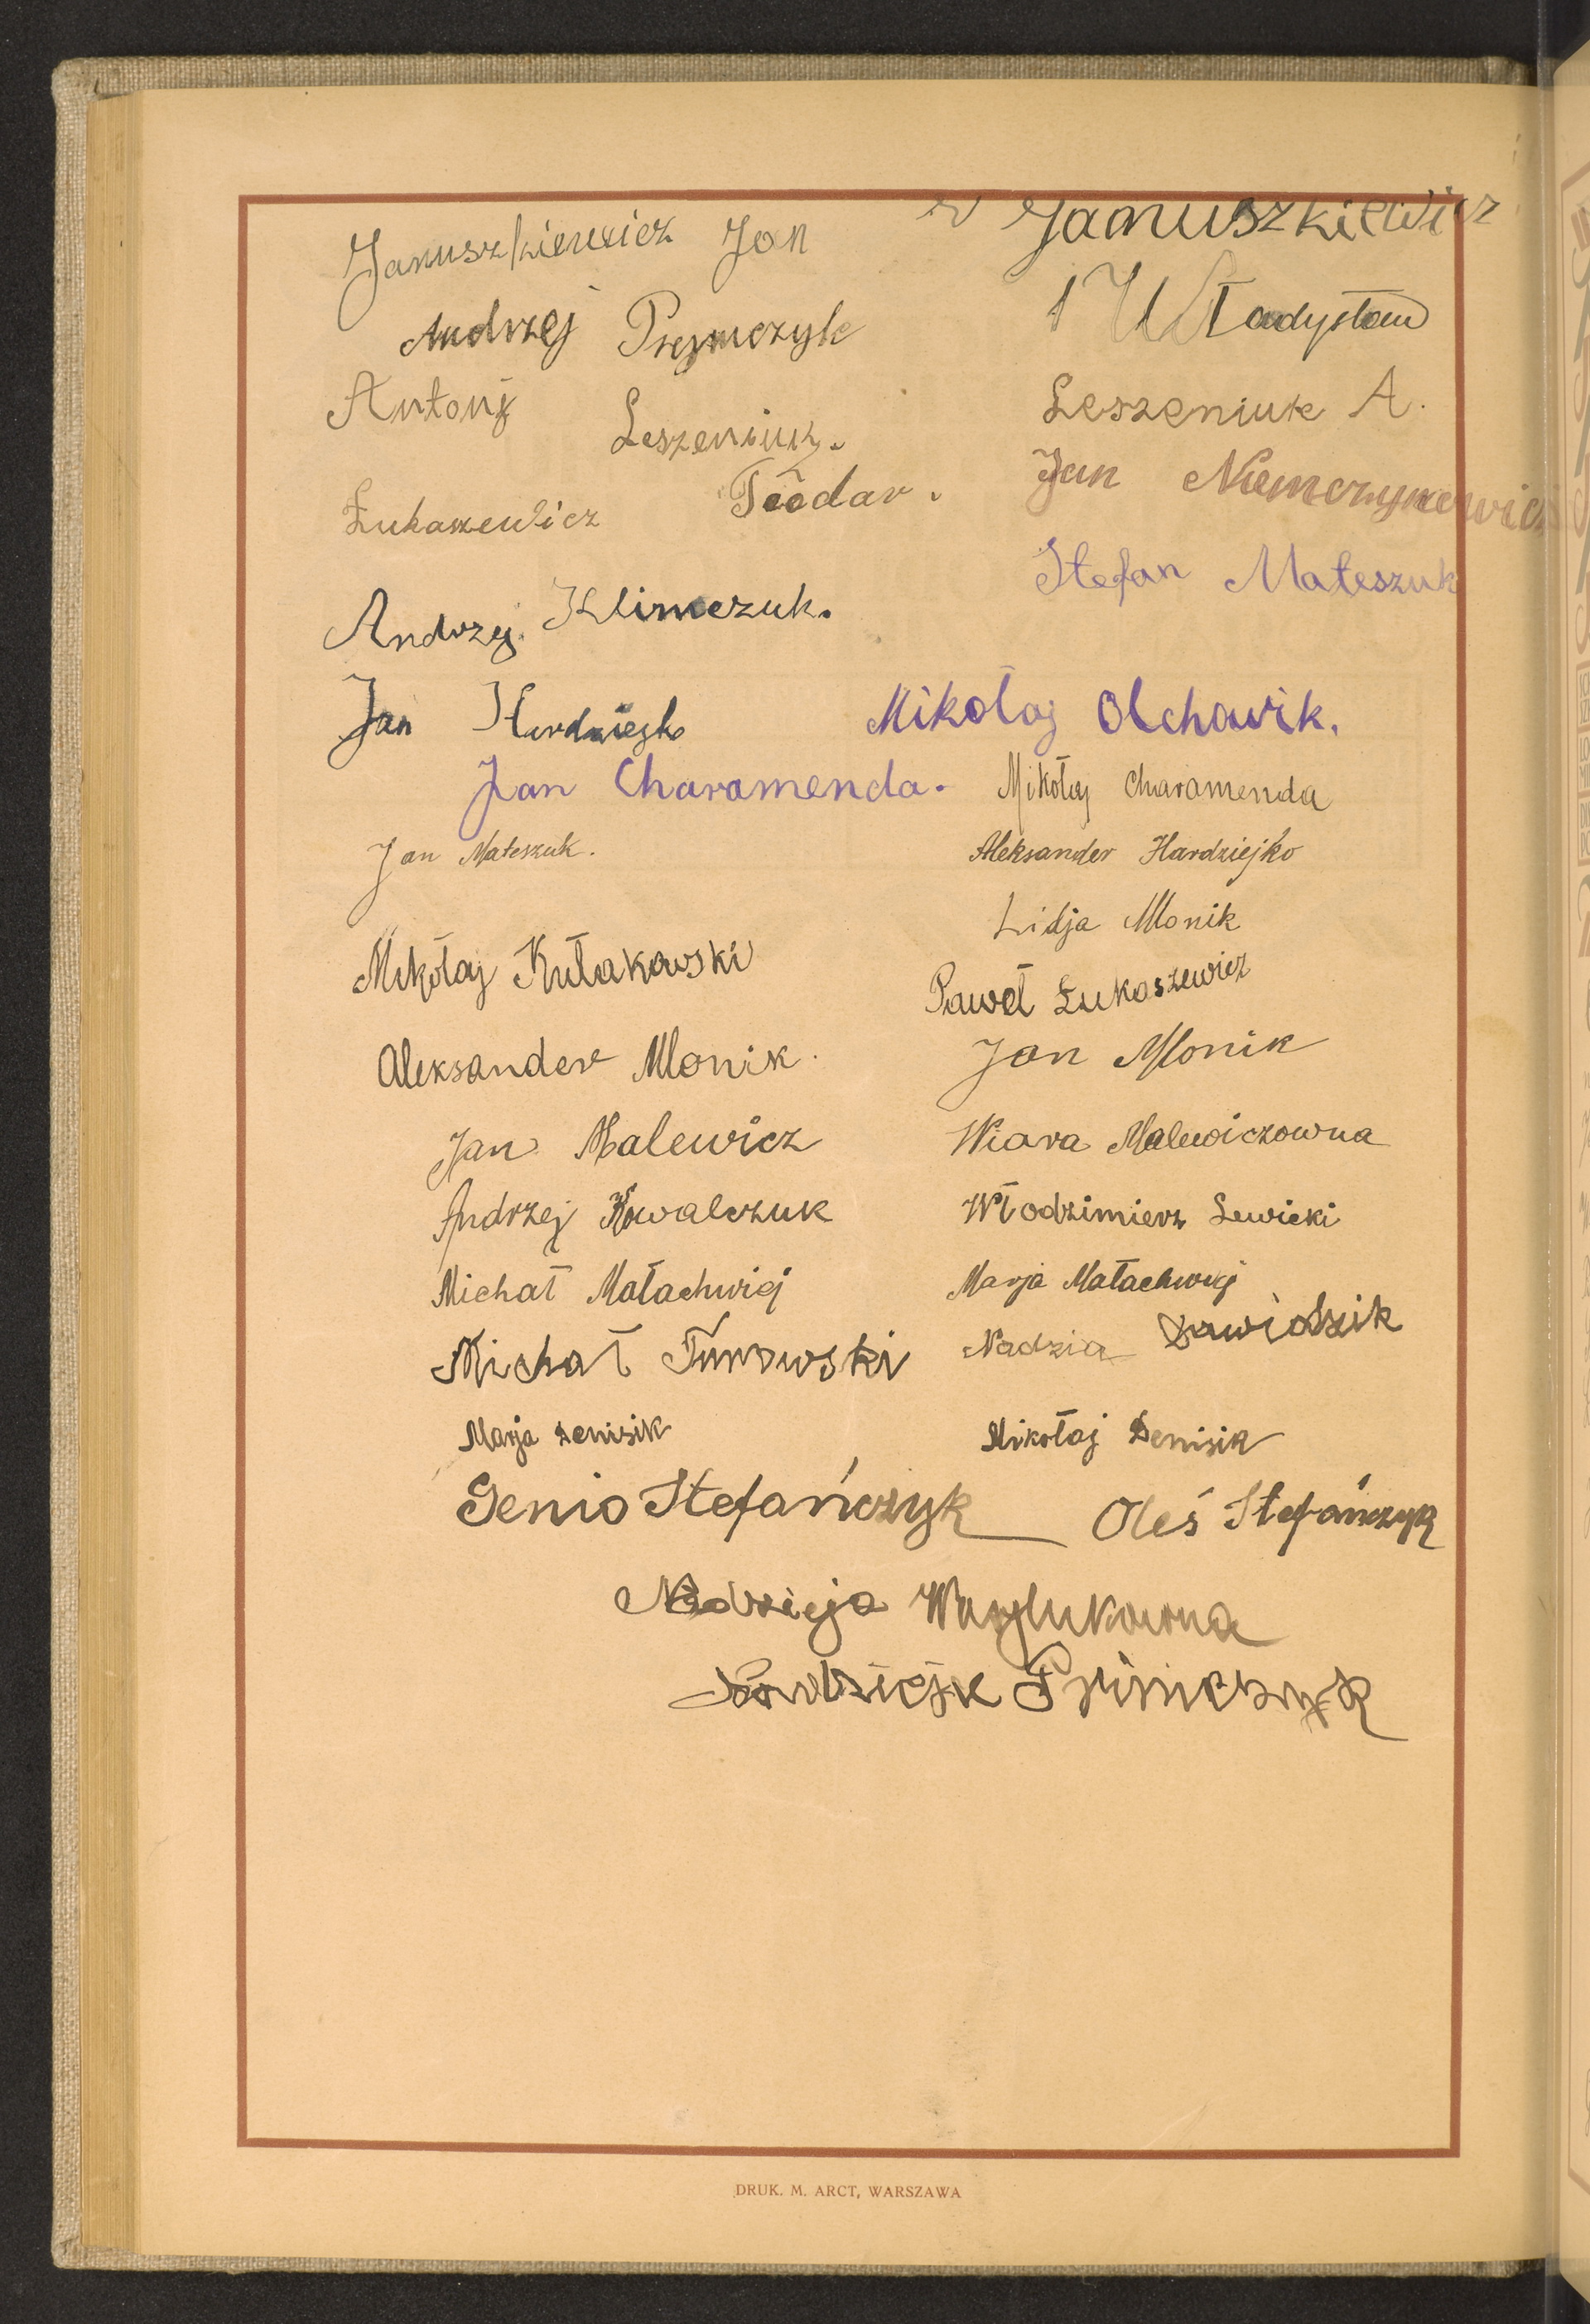 Januszkiewicz Jan
Januszkiewicz
Władysław
Andrzej Prymczyk
Antonij Leszeniuk.
Leszeniuk A.
Łukaszewicz Teodar.
Jan Niemczynowicz
Stefan Mateszuk
Andrzej Klimczuk.
Jan Hardziejko
Mikołaj Olchowik.
Jan Charamenda.
Mikołaj Charamenda
Jan Mateszuk.
Aleksander Hardziejko
Lidja Monik
Mikołaj Kułakowski
Paweł Łukaszewicz
Aleksander Monik.
Jan Monik
Jan Malewicz
Wiara Malewiczowna
Andrzej Kowalczuk
Włodzimierz Lewicki
Michał Małachwiej
Marja Małachwiej
Michał Turowski
Nadzia Dawidzik
Marja Denisik
Mikołaj Denisik
Genio Stefańczyk
Oleś Stefańczyk
Nadzieja
Primczyk
DRUK. M. ARCT, WARSZAWA